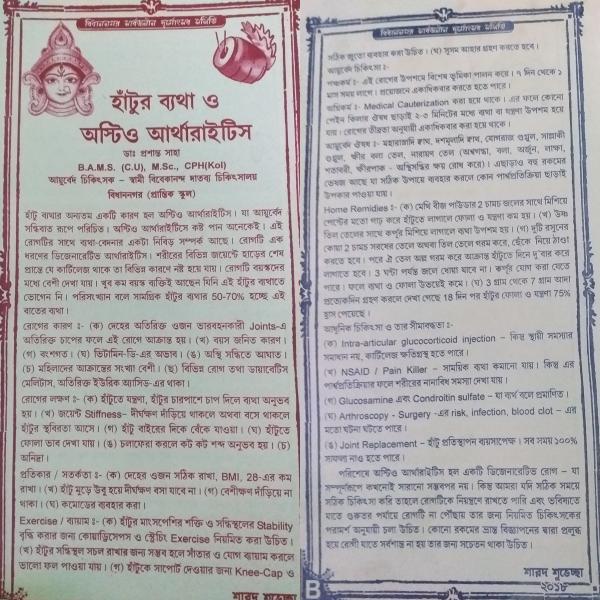 বিধাননগর সার্বজনীন দুর্গোৎসব সমিতি
হাঁটুর ব্যথা ও
অস্টিও আর্থারাইটিস
ডাঃ প্রশান্ত সাহা
B.A.M.S. (C.U), M.Sc., CPH(Kol)
আয়ুর্বেদ চিকিৎসক – স্বামী বিবেকানন্দ দাতব্য চিকিৎসালয়
বিধাননগর (প্রান্তিক স্কুল)
হাঁটু ব্যথার অন্যতম একটি কারণ হল অস্টিও আর্থারাইটিস। যা আয়ুর্বেদে
সন্ধিবাত রূপে পরিচিত। অস্টিও আর্থারাইটিসে কষ্ট পান অনেকেই। এই
রোগটির সাথে ব্যথা-বেদনার একটা নিবিড় সম্পর্ক আছে। রোগটি এক
ধরণের ডিজেনারেটিভ আর্থারাইটিস। শরীরের বিভিন্ন জয়েন্টে হাড়ের শেষ
প্রান্তে যে কার্টিলেজ থাকে তা বিভিন্ন কারণে নষ্ট হয়ে যায়। রোগটি বয়স্কদের
মধ্যে বেশী দেখা যায়। খুব কম বয়স্ক ব্যক্তিই আছেন যিনি এই হাঁটুর ব্যথাতে
ভোগেন নি। পরিসংখ্যান বলে সামগ্রিক হাঁটুর ব্যথার 50-70% হচ্ছে এই
বাতের ব্যথা।
রোগের কারণ ঃ- (ক) দেহের অতিরিক্ত ওজন ভারবহনকারী Joints-এ
অতিরিক্ত চাপের ফলে এই রোগে আক্রান্ত হয়। (খ) বয়স জনিত কারণ।
(গ) বংশগত। (ঘ) ভিটামিন-ডি-এর অভাব। (ঙ) অস্থি সন্ধিতে আঘাত।
(চ) মহিলাদের আক্রান্তের সংখ্যা বেশী। (ছ) বিভিন্ন রোগ তথা ডায়াবেটিস
মেলিটাস, অতিরিক্ত ইউরিক অ্যাসিড-এর থাকা।
রোগের লক্ষণ ঃ- (ক) হাঁটুতে যন্ত্রণা, হাঁটুর চারপাশে চাপ দিলে ব্যথা অনুভব
হয়। (খ) জয়েন্ট Stiffness– দীর্ঘক্ষণ দাঁড়িয়ে থাকলে অথবা বসে থাকলে
হাঁটুর স্থবিরতা আসে। (গ) হাঁটু বাইরের দিকে বেঁকে যাওয়া। (ঘ) হাঁটুতে
ফোলা ভাব দেখা যায়। (ঙ) চলাফেরা করলে কট কট শব্দ অনুভব হয়। (চ)
অনিদ্রা।
প্রতিকার / সতর্কতা ঃ- (ক) দেহের ওজন সঠিক রাখা, BMI, 28-এর কম
রাখা। (খ) হাঁটু মুড়ে উবু হয়ে দীর্ঘক্ষণ বসা যাবে না। (গ) বেশীক্ষণ দাঁড়িয়ে না
থাকা। (ঘ) কমোডের ব্যবহার করা।
Exercise / ব্যায়াম ঃ- (ক) হাঁটুর মাংসপেশির শক্তি ও সন্ধিস্থলের Stability
বৃদ্ধি করার জন্য কোয়াড্রিসেপস ও স্ট্রেচিং Exercise নিয়মিত করা উচিত।
(খ) হাঁটুর সন্ধিস্থল সচল রাখার জন্য সম্ভব হলে সাঁতার ও যোগ ব্যায়াম করলে
ভালো ফল পাওয়া যায়। (গ) হাঁটুকে সাপোর্ট দেওয়ার জন্য Knee-Cap ও
শারদ শুভেচ্ছা
বিধাননগর সার্বজনীন দুর্গোৎসব সমিতি
সঠিক জুতো ব্যবহার করা উচিত। (ঘ) সুসম আহার গ্রহণ করতে হবে।
আয়ুর্বেদ চিকিৎসা ঃ-
পঞ্চকর্ম ঃ- এই রোগের উপশমে বিশেষ ভূমিকা পালন করে। ৭ দিন থেকে ১
মাস সময় লাগে। প্রয়োজনে একাধিকবার করতে হতে পারে।
অগ্নিকর্ম ঃ- Medical Cauterization করা হয়ে থাকে। এর ফলে কোনো
পেইন কিলার ঔষধ ছাড়াই ২-৩ মিনিটের মধ্যে ব্যথা বা যন্ত্রণা উপশম হয়ে
যায়। রোগের তীব্রতা অনুযায়ী একাধিকবার করা হয়ে থাকে।
আয়ুর্বেদ ঔষধ ঃ- মহারাস্নাদি ক্বাথ, দশমূলাদি ক্বাথ, যোগরাজ গুগ্গুল, সাল্লাকী
গুগ্গুল, ক্ষীর বলা তেল, নারায়ন তেল (অশ্বগন্ধা, বলা, অর্জুন, লাক্ষা,
শতাবরী, ক্ষীরপাক - অস্থিসন্ধির ক্ষয় রোধ করে)। এছাড়াও বহু রকমের
ভেষজ আছে যা সঠিক উপায়ে ব্যবহার করলে কোন পার্শ্বপ্রতিক্রিয়া ছাড়াই
উপকার পাওয়া যায়।
Home Remidies ঃ- (ক) মেথি বীজ পাউডার 2 চামচ জলের সাথে মিশিয়ে
পেস্টের মতো গাঢ় করে হাঁটুতে লাগালে ফোলা ও যন্ত্রণা কম হয়। (খ) উষ্ণ
তিল তেলের সাথে কর্পূর মিশিয়ে লাগালে ব্যথা উপশম হয়। (গ) দুটি রসুনের
কোয়া 2 চামচ সরষের তেলে অথবা তিল তেলে গরম করে, ছেঁকে নিয়ে ঠাণ্ডা
করতে হবে। পরে ঐ তেল অল্প গরম করে আক্রান্ত হাঁটুতে দিনে দু'বার করে
লাগাতে হবে। 3 ঘণ্টা পর্যন্ত জলে ধোয়া যাবে না। কর্পূর যোগ করা যেতে
পারে। ফলে ব্যথা ও ফোলা উভয়েই কমে। (ঘ) 3 গ্রাম থেকে 7 গ্রাম আদা
প্রত্যেকদিন গ্রহণ করলে দেখা গেছে 18 দিন পর হাঁটুর ফোলা ও যন্ত্রণা 75%
হ্রাস পেয়েছে।
আধুনিক চিকিৎসা ও তার সীমাবদ্ধতা ঃ-
(ক) Intra-articular glucocorticoid injection – কিন্তু স্থায়ী সমস্যার
সমাধান নয়, কার্টিলেজ ক্ষতিগ্রস্থ হতে পারে।
(খ) NSAID / Pain Killer – সাময়িক ব্যথা কমানো যায়। কিন্তু এর
পার্শ্বপ্রতিক্রিয়ার ফলে শরীরের নানাবিধ সমস্যা দেখা যায়।
(গ) Glucosamine এবং Condroitin sulfate - যা ব্যর্থ বলে প্রমাণিত।
(ঘ) Arthroscopy - Surgery -এর risk, infection, blood clot – এর
মতো ঘটনা ঘটতে পারে।
(ঙ) Joint Replacement - হাঁটু প্রতিস্থাপন ব্যয়সাপেক্ষ। সব সময় ১০০%
সাফল্য নাও হতে পারে।
পরিশেষে অস্টিও আর্থারাইটিস হল একটি ডিজেনারেটিভ রোগ – যা
সম্পূর্ণরূপে কখনোই সারানো সম্ভবপর নয়। কিন্তু আমরা যদি সঠিক সময়ে
সঠিক চিকিৎসা করি তাহলে রোগটিকে নিয়ন্ত্রণে রাখতে পারি এবং ভবিষ্যতে
যাতে গুরুতর পর্যায়ে রোগটি না পৌঁছায় তার জন্য নিয়মিত চিকিৎসকের
পরামর্শ অনুযায়ী চলা উচিত। কোনো রকমের ভ্রান্ত বিজ্ঞাপনের দ্বারা প্রলুব্ধ
হয়ে রোগী যাতে সর্বশান্ত না হয় তার জন্য সচেতন থাকা উচিৎ।
শারদ শুভেচ্ছা
২০১৮
B